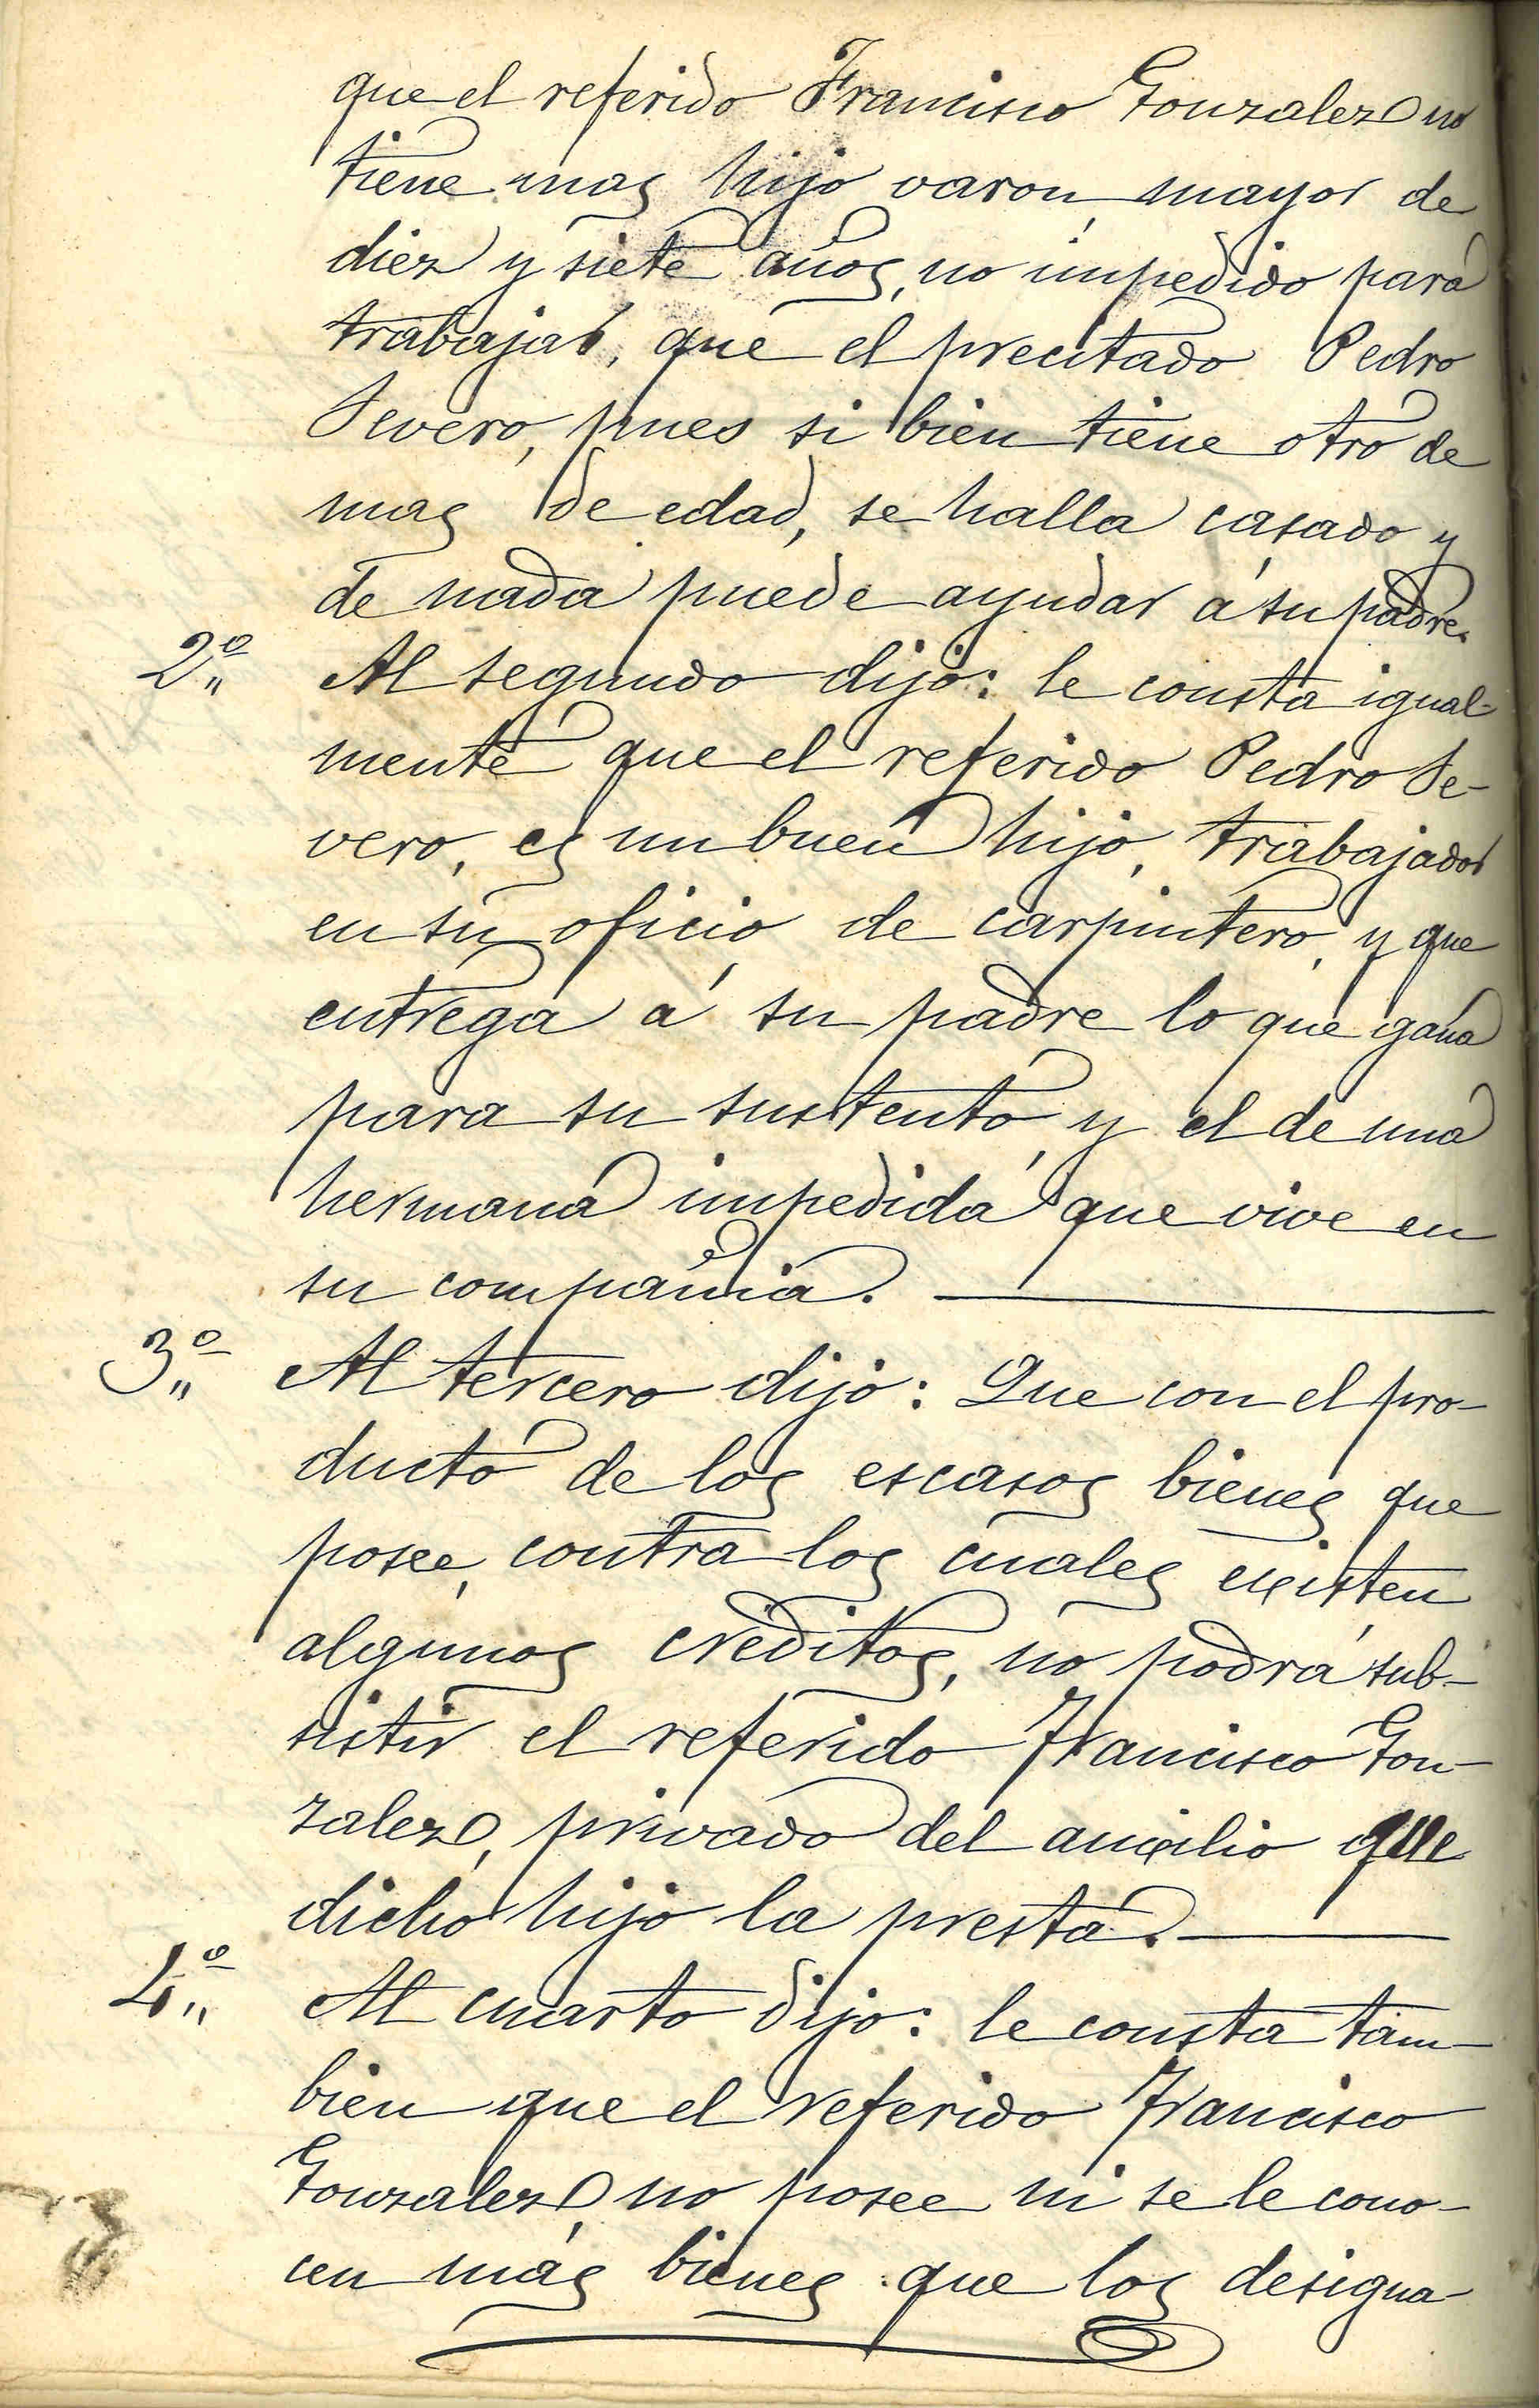 que el referido Francisco Gonzalez no
tiene mas hijo varon, mayor de
diez y siete años, no impedido para
trabajar, que el precitado Pedro
Severo, pues si bien tiene otro de
mas de edad, se halla casado y
de nada puede ayudar á su padre.
2º Al segundo dijo: le consta igual-
mente que el referido Pedro Se-
vero, es un buen hijo, trabajador
en su oficio de carpintero, y que
entrega á su padre lo que gana
para su sustento, y el de una
hermana impedida que vive en
su compañia.
3º Al tercero dijo: Que con el pro-
ducto de los escasos bienes que
posee, contra los cuales existen
algunos creditos, no podrá sub-
sistir el referido Francisco Gon-
zalez, privado del auxilio que
dicho hijo la presta.
4º Al cuarto dijo: le consta tam-
bien que el referido Francisco
Gonzalez, no posee ni se le cono-
cen más bienes que los designa-